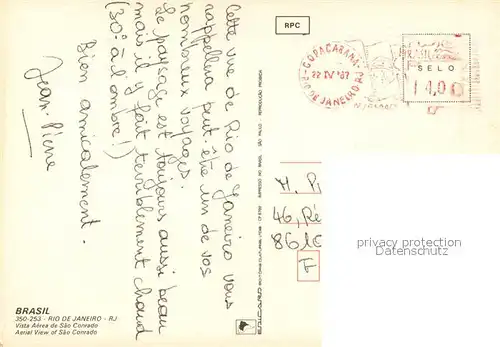 Cette vue de Rio de Janeiro vous
rappellera peut-être un de vos
nombreux voyages.
Le paysage est toujours aussi beau
mais il y fait terriblement chaud
(30° à l'ombre!)
Bien amicalement.
Jean-Pierre
BRASIL
350-253 - RIO DE JANEIRO - RJ
Vista Aérea de São Conrado
Aerial View of São Conrado
RPC
COPACABANA
22 IV '87
RIO DE JANEIRO-RJ
BRASIL
SELO
EDICARD
REPRODUÇÃO PROIBIDA
M. P
46, Ré
8610
F
privacy protection watermark
anticipates claims for damages